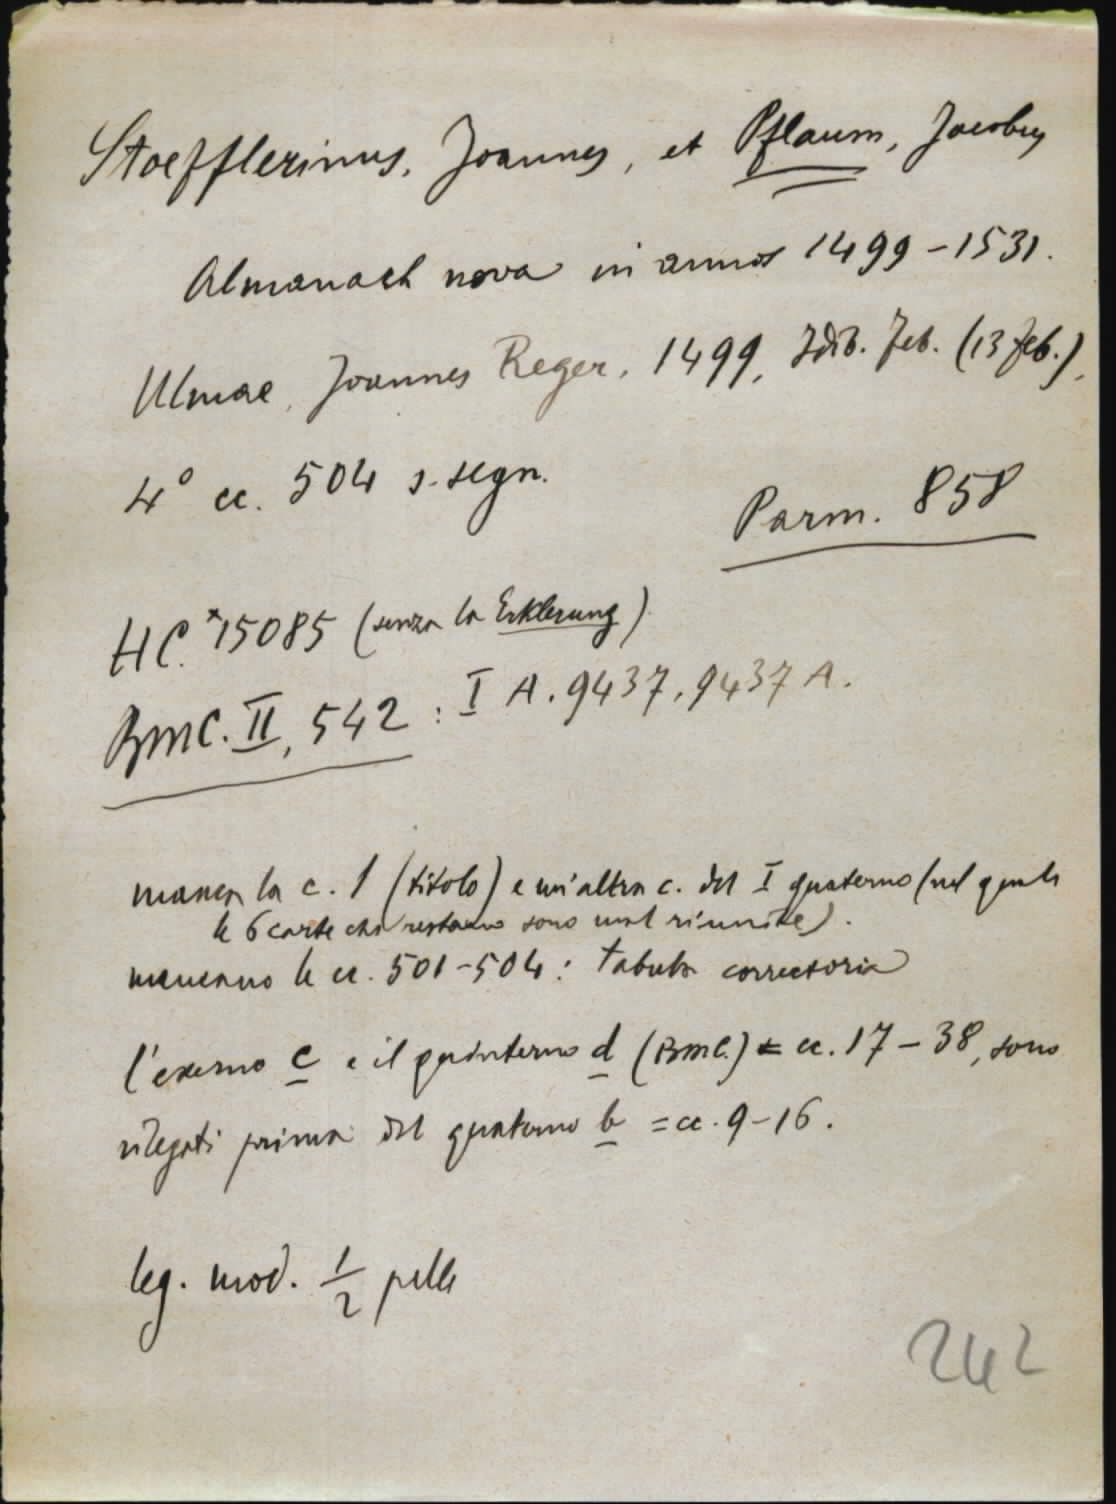 Stoefflerinus, Joannes, et Pflaum, Jacobus
Almanach nova in annos 1499-1531.
Ulmae, Joannes Reger, 1499, Idib. Feb. (13 feb.),
4° cc. 504 s. segn.
Parm. 858
HC. *15085 (senza la Erklerung)
BMC. II, 542 : I A. 9437, 9437 A.
manca la c. 1 (titolo) e un'altra c. del I quaterno (nel quale
le 6 carte che restano sono mal riunite).
mancano le cc. 501-504: tabula correctoria
l'exerno c e il quinterno d (BMC.) = cc. 17-38, sono
rilegati prima del quaterno b = cc. 9-16.
leg. mod. 1/2 pelle
242